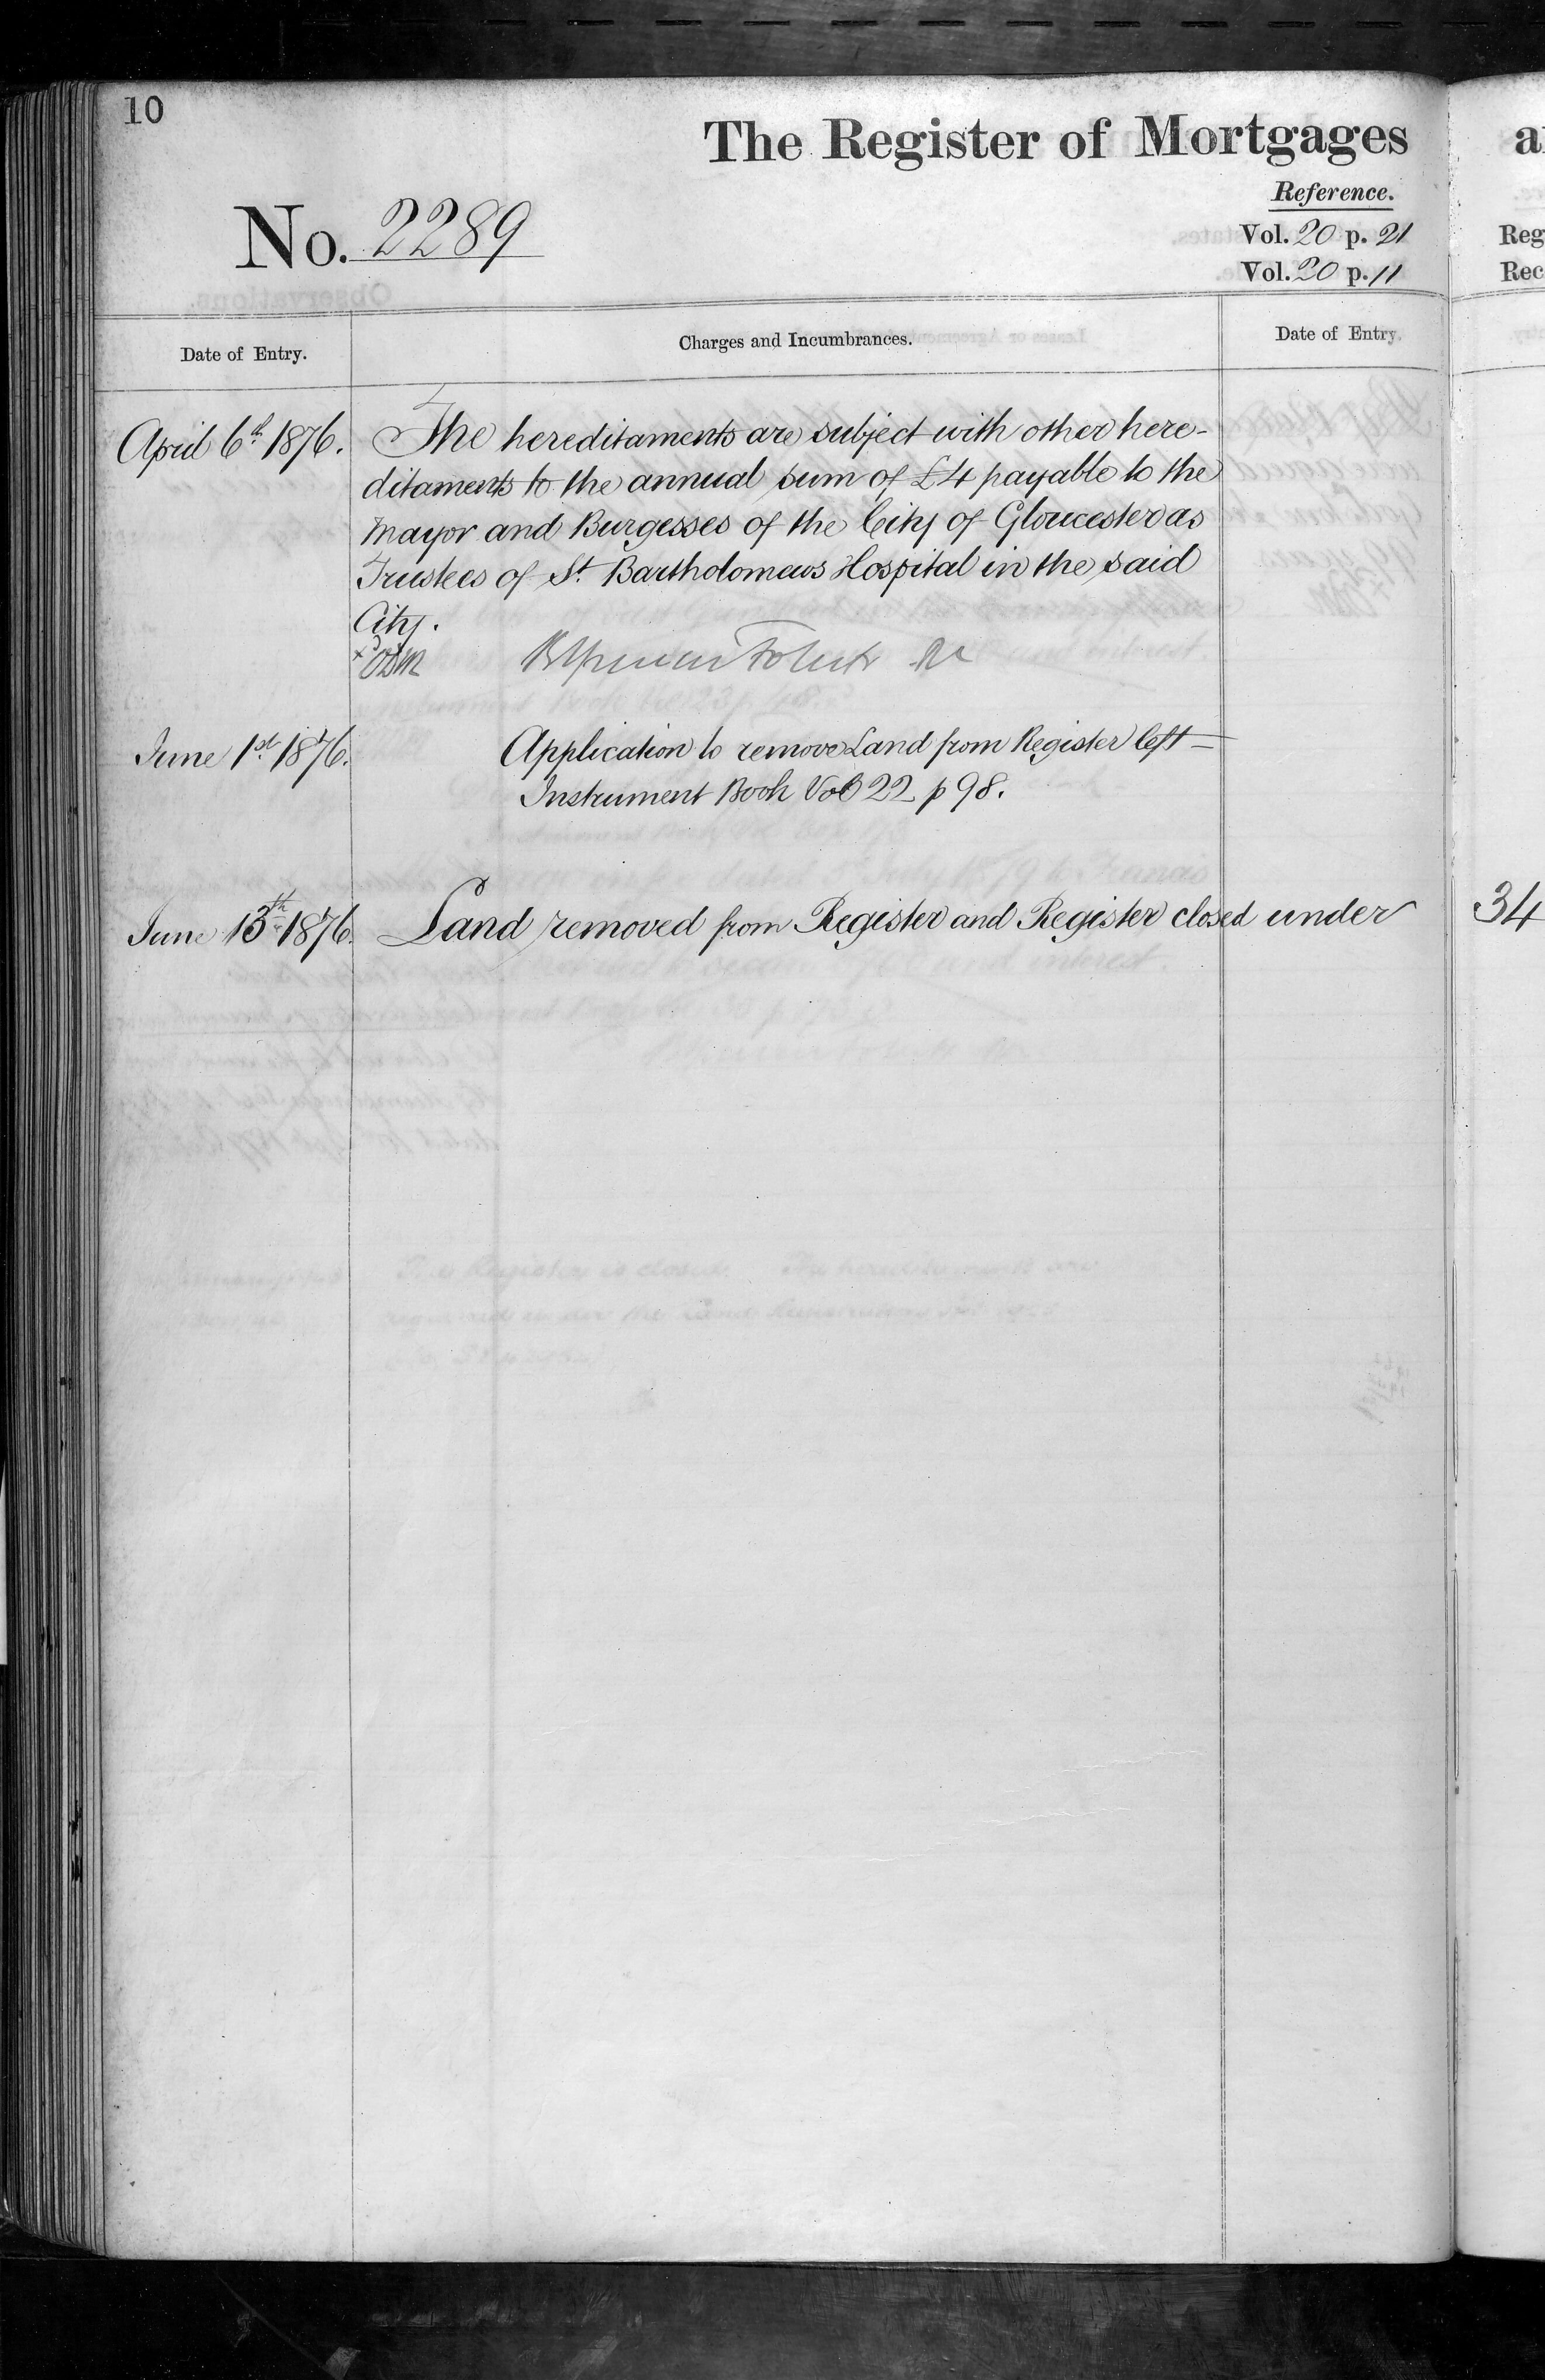 10
The Register of Mortgages
Reference.
No. 2289
Vol. 20 p. 21
Vol. 20 p. 11
Date of Entry.
Charges and Incumbrances.
Date of Entry.
April 6th 1876.
The hereditaments are subject with other here-
ditaments to the annual sum of £4 payable to the
Mayor and Burgesses of the City of Gloucester as
Trustees of St. Bartholomews Hospital in the said
City.
June 1st 1876.
Application to remove Land from Register left —
Instrument Book Vol 22 p 98.
June 13th 1876.
Land removed from Register and Register closed under
a
Reg
Rec
34